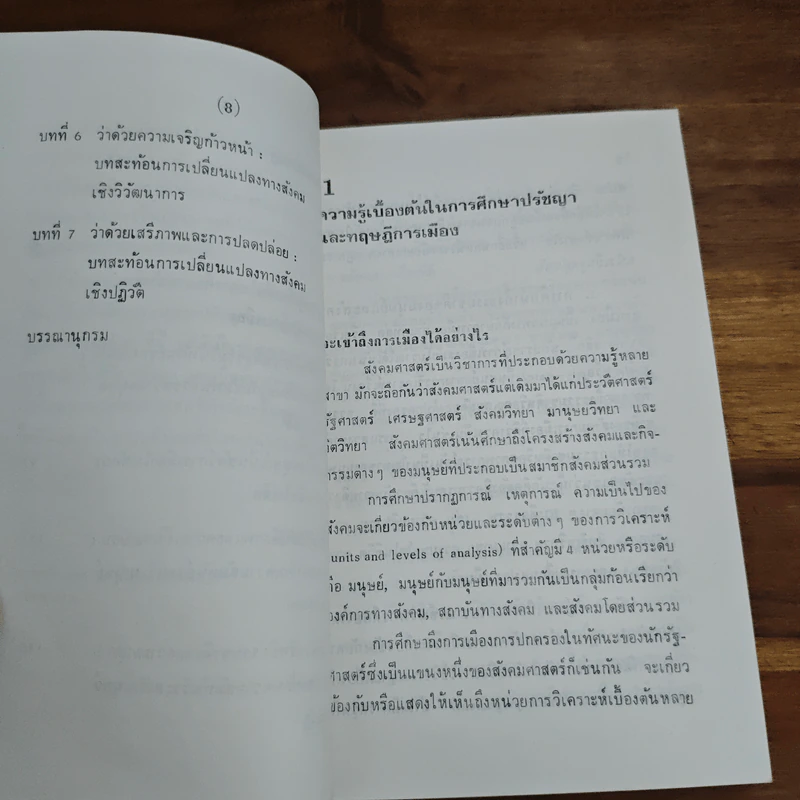 (8)
บทที่ 6 ว่าด้วยความเจริญก้าวหน้า :
บทสะท้อนการเปลี่ยนแปลงทางสังคม
เชิงวิวัฒนาการ
บทที่ 7 ว่าด้วยเสรีภาพและการปลดปล่อย :
บทสะท้อนการเปลี่ยนแปลงทางสังคม
เชิงปฏิวัติ
บรรณานุกรม
1
ความรู้เบื้องต้นในการศึกษาปรัชญา
และทฤษฎีการเมือง
จะเข้าถึงการเมืองได้อย่างไร
สังคมศาสตร์เป็นวิชาการที่ประกอบด้วยความรู้หลาย
สาขา มักจะถือกันว่าสังคมศาสตร์แต่เดิมมาได้แก่ประวัติศาสตร์
รัฐศาสตร์ เศรษฐศาสตร์ สังคมวิทยา มานุษยวิทยา และ
จิตวิทยา สังคมศาสตร์เน้นศึกษาถึงโครงสร้างสังคมและกิจ-
กรรมต่างๆ ของมนุษย์ที่ประกอบเป็นสมาชิกสังคมส่วนรวม
การศึกษาปรากฏการณ์ เหตุการณ์ ความเป็นไปของ
สังคมจะเกี่ยวข้องกับหน่วยและระดับต่างๆ ของการวิเคราะห์
(units and levels of analysis) ที่สำคัญมี 4 หน่วยหรือระดับ
คือ มนุษย์, มนุษย์กับมนุษย์ที่มารวมกันเป็นกลุ่มก้อนเรียกว่า
องค์การทางสังคม, สถาบันทางสังคม และสังคมโดยส่วนรวม
การศึกษาถึงการเมืองการปกครองในทัศนะของนักรัฐ-
ศาสตร์ซึ่งเป็นแขนงหนึ่งของสังคมศาสตร์ก็เช่นกัน จะเกี่ยว
ข้องกับหรือแสดงให้เห็นถึงหน่วยการวิเคราะห์เบื้องต้นหลาย